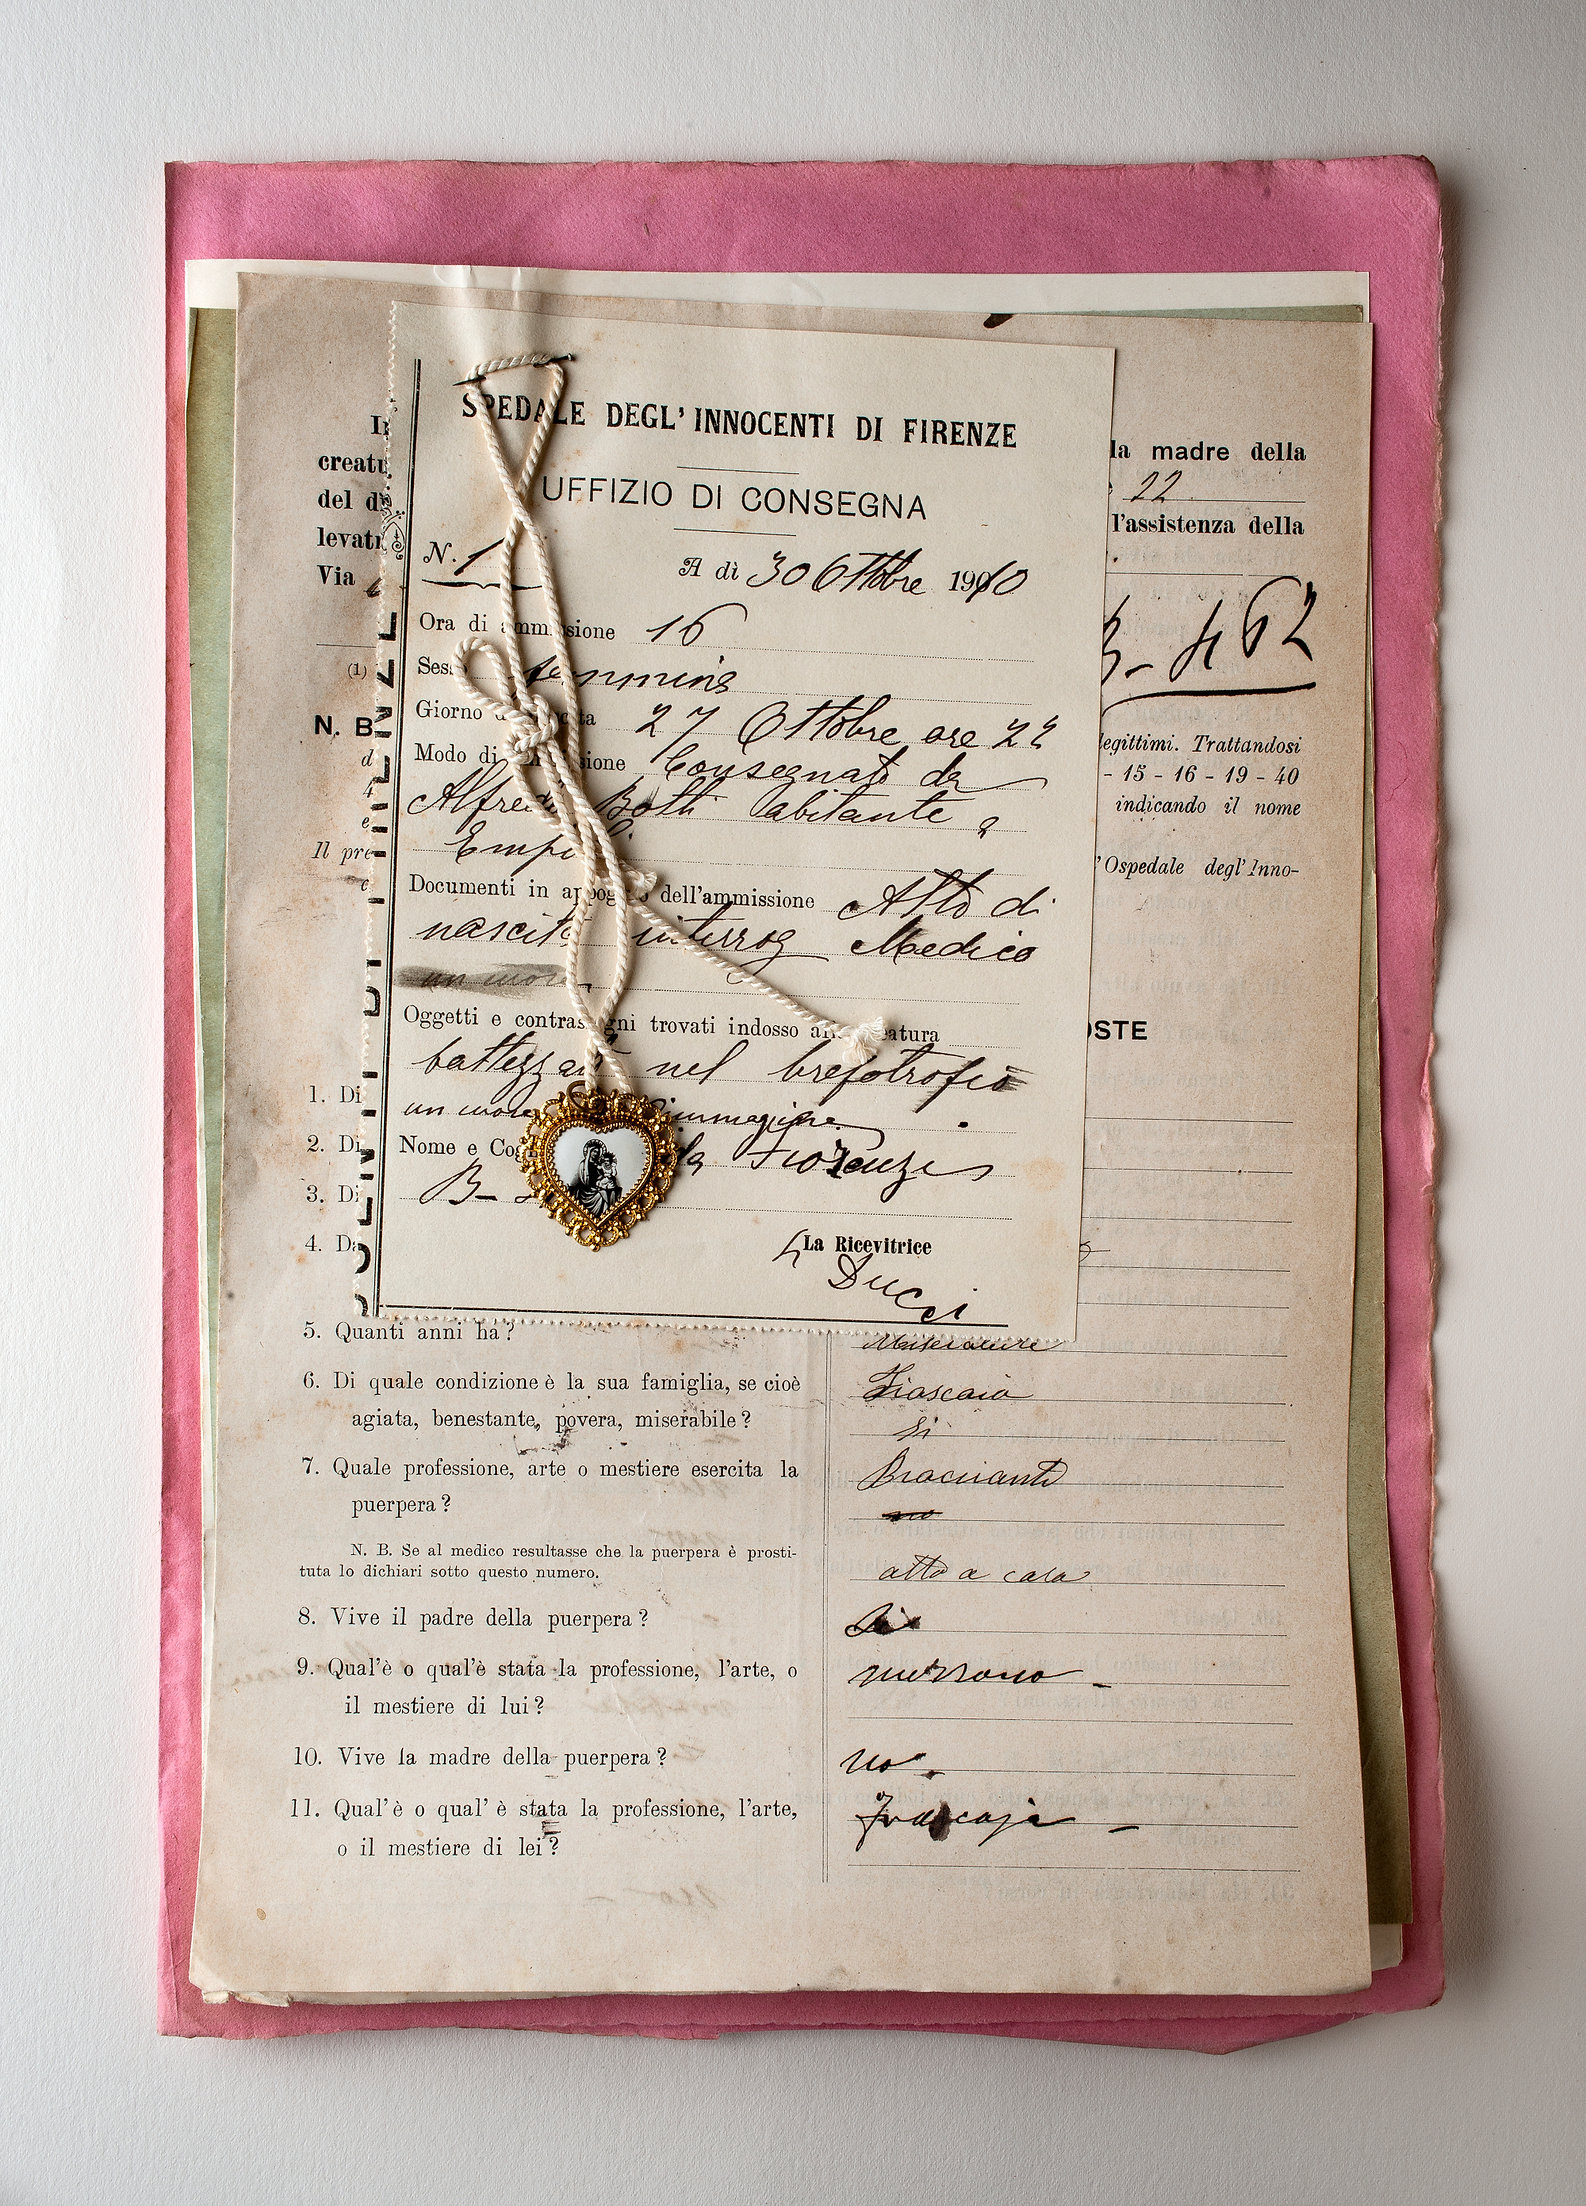 SPEDALE DEGL' INNOCENTI DI FIRENZE
UFFIZIO DI CONSEGNA
N. 1
A dì 30 Ottobre 1910
Ora di ammissione 16
Sesso femmina
Giorno di nascita 27 Ottobre ore 22
Modo di ammissione Consegnato da
Alfredo Botti abitante a
Empoli
Documenti in appoggio dell'ammissione Atto di
nascita interrog Medico
un more
Oggetti e contrassegni trovati indosso alla creatura
battezzata nel brefotrofio
un immagine
Nome e Fiorenza
B-
La Ricevitrice
Ducci
la madre della
creatu
22
del d
l'assistenza della
levatr
Via
462
(1)
N. B
legittimi. Trattandosi
- 15 - 16 - 19 - 40
indicando il nome
Il pre
l'Ospedale degl'Inno-
OSTE
1. Di
2. Di
3. Di
4. Da
5. Quanti anni ha?
Miserabile
6. Di quale condizione è la sua famiglia, se cioè
Fiascaia
agiata, benestante, povera, miserabile?
si
7. Quale professione, arte o mestiere esercita la
Bracciante
puerpera?
no
N. B. Se al medico resultasse che la puerpera è prosti-
tuta lo dichiari sotto questo numero.
atta a casa
8. Vive il padre della puerpera?
Si
9. Qual'è o qual'è stata la professione, l'arte, o
il mestiere di lui?
10. Vive la madre della puerpera?
no
11. Qual'è o qual' è stata la professione, l'arte,
o il mestiere di lei?